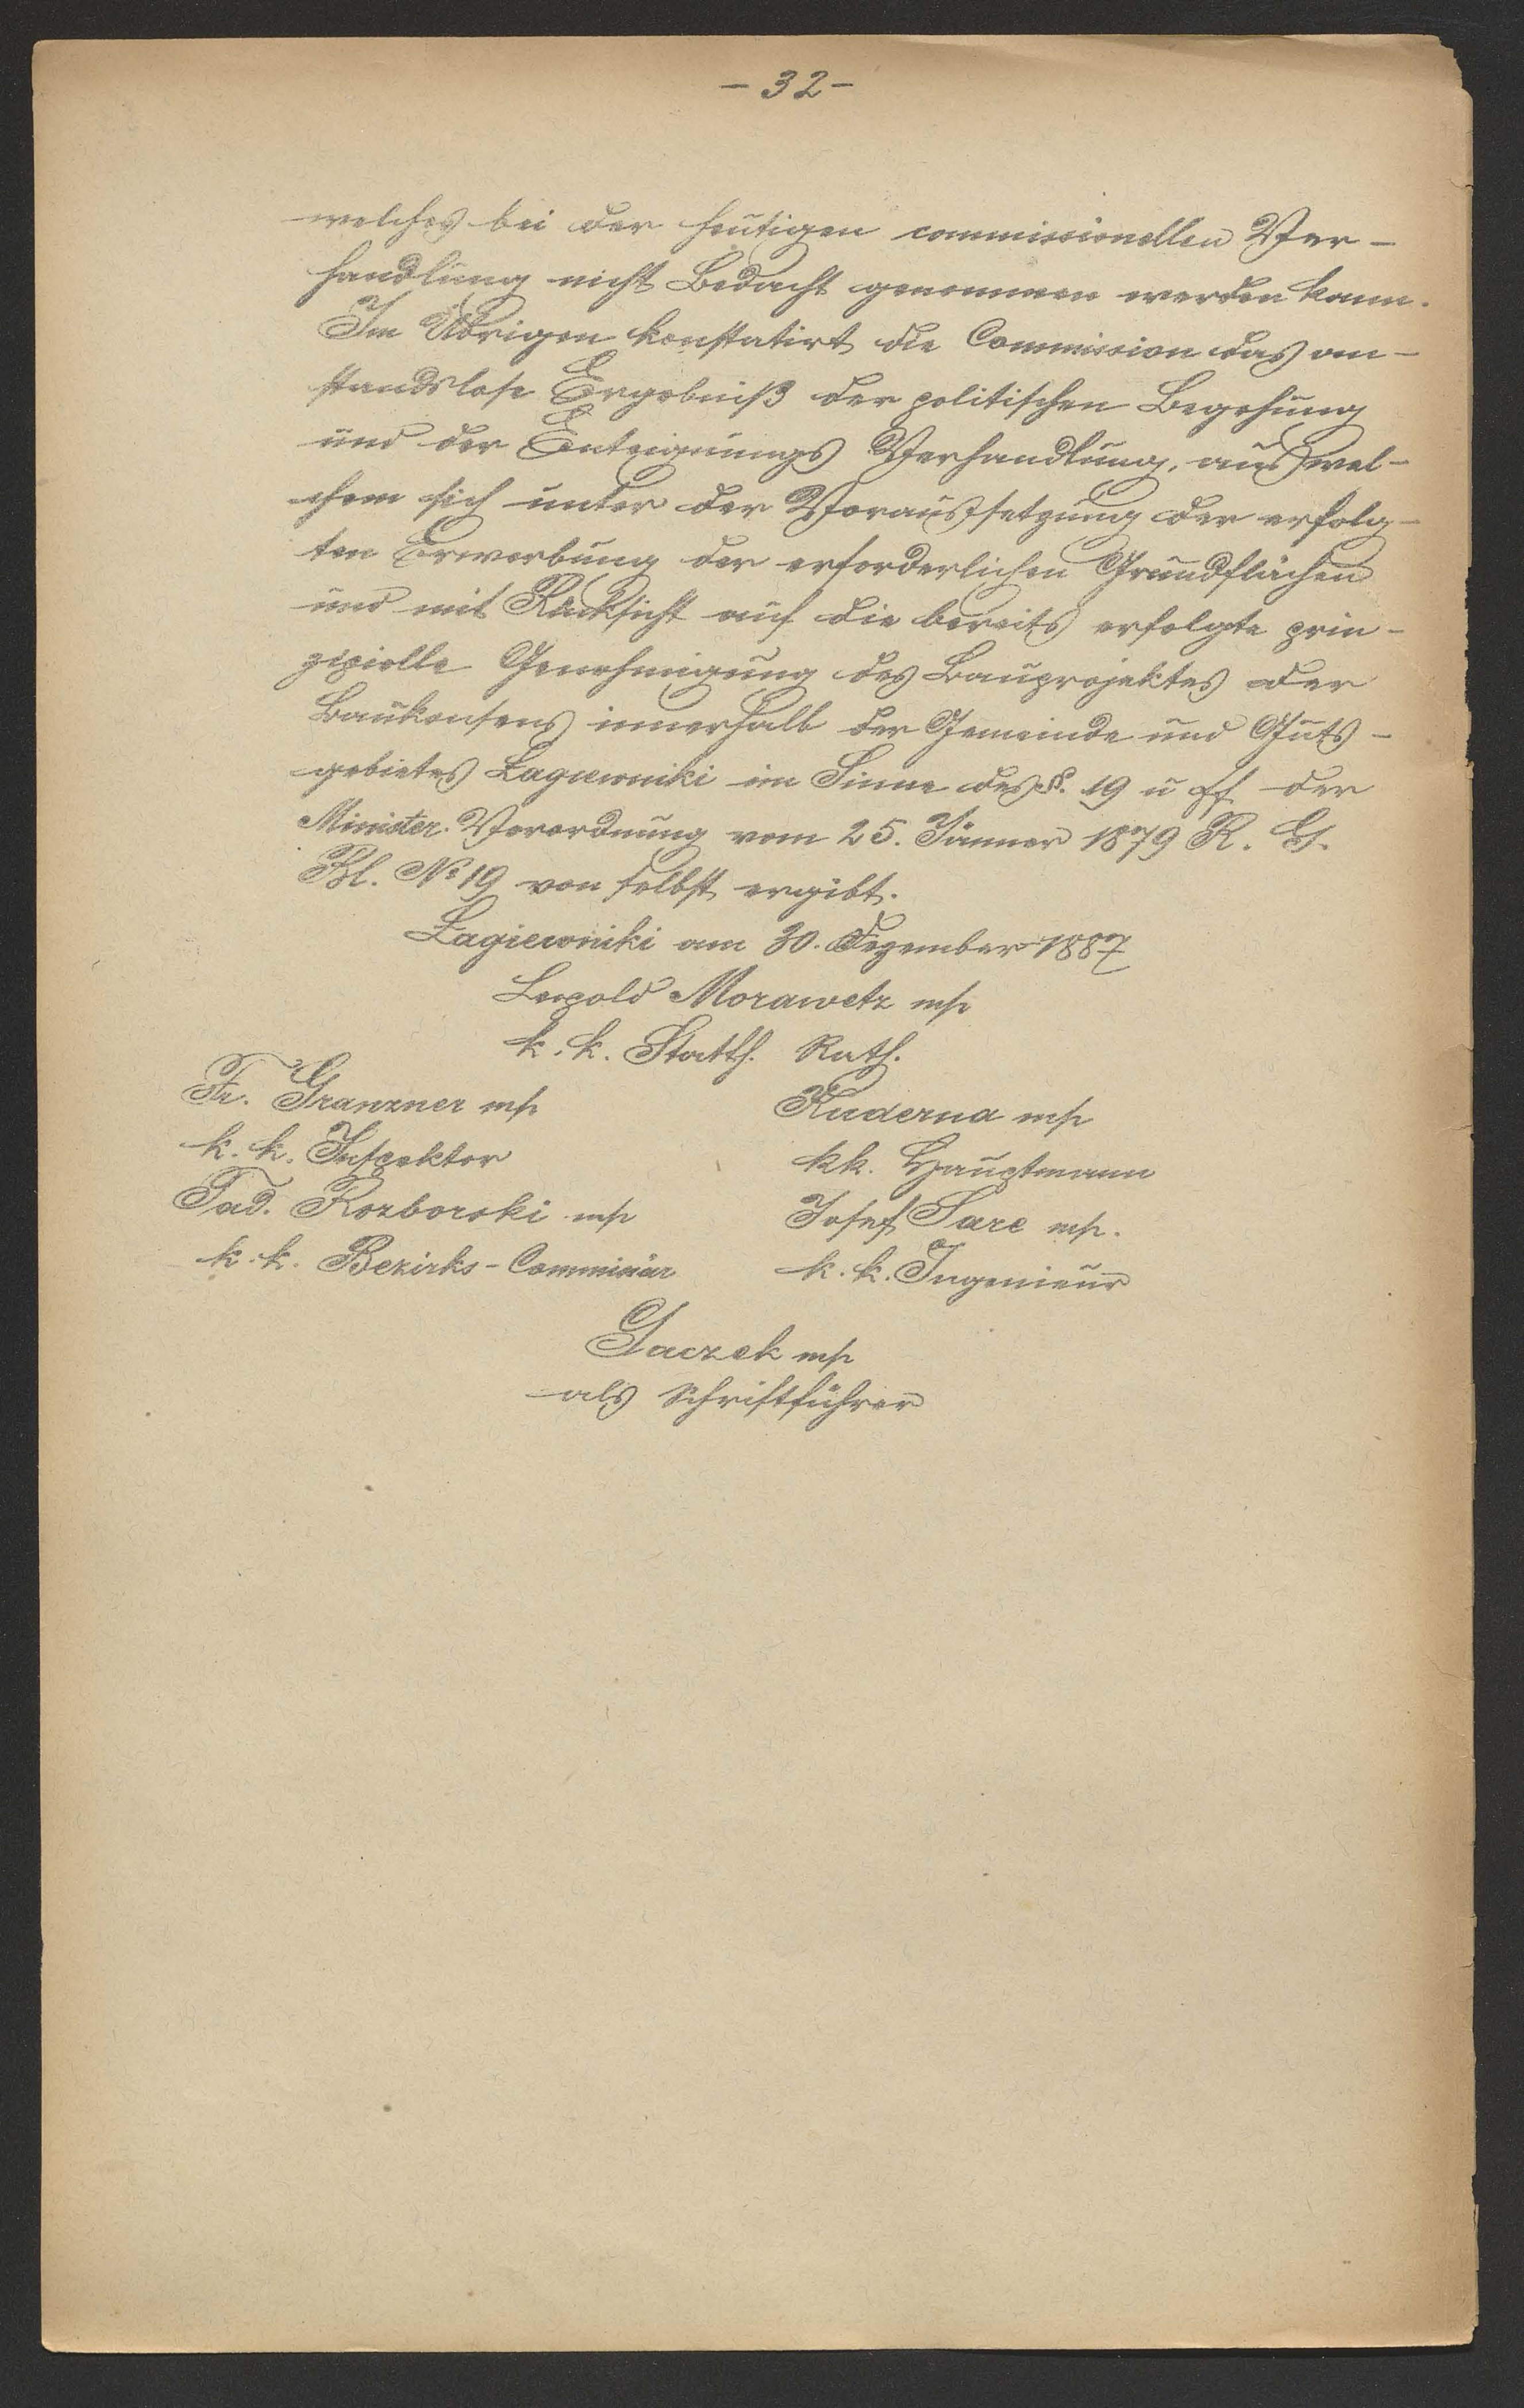 - 32 -
welches bei der heutigen commissionellen Ver-
handlung nicht Bedacht genommen werden kann.
Im Übrigen konstatirt die Commission das an-
standslose Ergebniß der politischen Begehung
und der Enteignungs Verhandlung, aus wel-
chem sich unter der Voraussetzung der erfolg-
ten Erwerbung der erforderlichen Grundflächen
und mit Rücksicht auf die bereits erfolgte prin-
zipielle Genehmigung des Bauprojektes der
Baukonsens innerhalb der Gemeinde und Guts-
gebietes Łagiewniki im Sinne des §. 19 u ff der
Minister. Verordnung vom 25. Jänner 1879 R. G.
Bl. № 19 von selbst ergibt.
Łagiewniki am 30. Dezember 1887
Leopold Morawetz mp
k. k. Statth. Rath.
Fr. Granzner mp
Kuderna mp
k. k. Inspektor
kk. Hauptmann
Tad. Rozborski mp
Josef Sare mp.
k. k. Bezirks-Commissär
k. k. Ingenieur
Gaczek mp
als Schriftführer